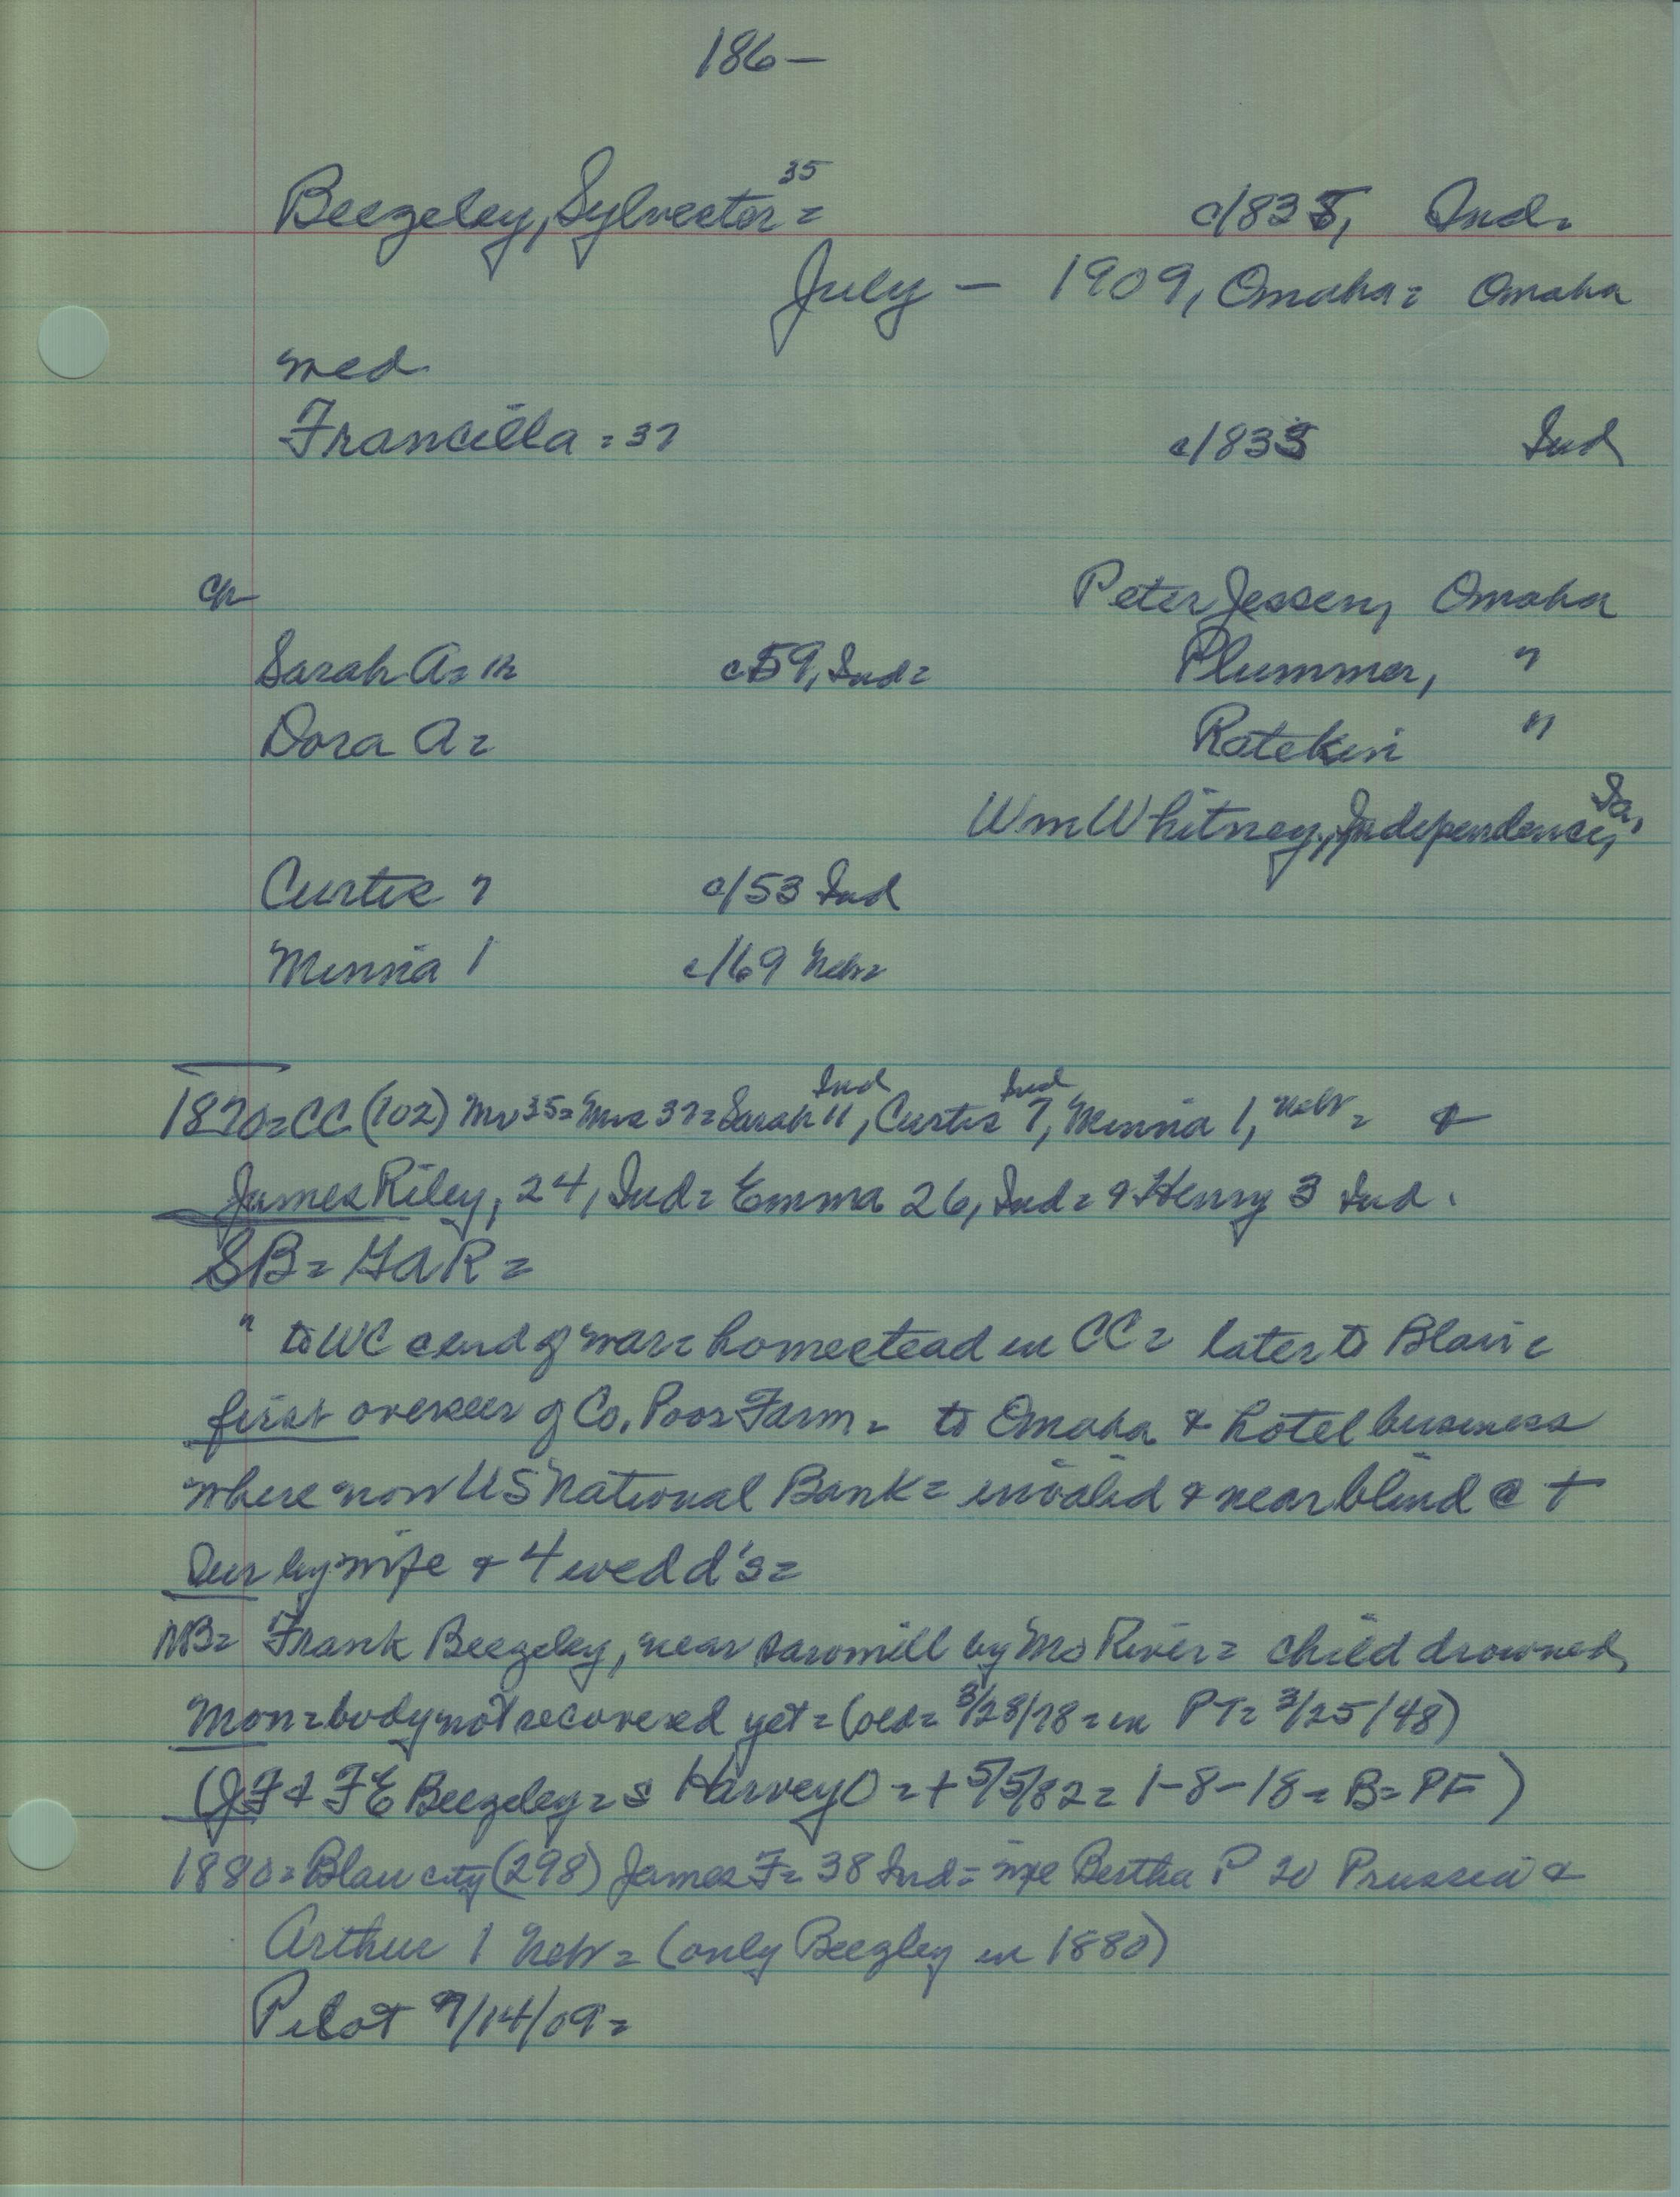 186—
Beezeley, Sylvester = 35 c/835, Ind.
July — 1909, Omaha = Omaha
med
Francilla = 37 c/833 Ind
ch Peter Jessen, Omaha
Sarah A = 11 c59, Ind = Plummer, "
Dora A = Ratekin "
Wm Whitney, Independence, Ia,
Curtis 7 c/53 Ind
Minnia 1 c/69 Nebr
1870 = CC (102) Mr 35 = Mrs 37 = Sarah 11 Ind, Curtis 7 Ind, Minnia 1, Nebr = &
James Riley, 24, Ind = Emma 26, Ind = & Henry 3 Ind.
SB = GAR =
" to WC end of war = homestead in CC = later to Blair =
first overseer of Co. Poor Farm = to Omaha & hotel business
where now US National Bank = invalid & near blind @ +
Sur by wife & 4 wed d's =
NB = Frank Beezeley, near sawmill by Mo River = child drowned,
Mon = body not recovered yet = (old = 3/28/78 = in PT = 3/25/48)
(JF & FE Beezeley = s Harvey O = + 5/5/82 = 1-8-18 = B = PF)
1880 = Blair city (298) James F = 38 Ind = wife Bertha P 20 Prussia &
Arthur 1 Nebr = (only Beezley in 1880)
Pilot 7/14/09 =